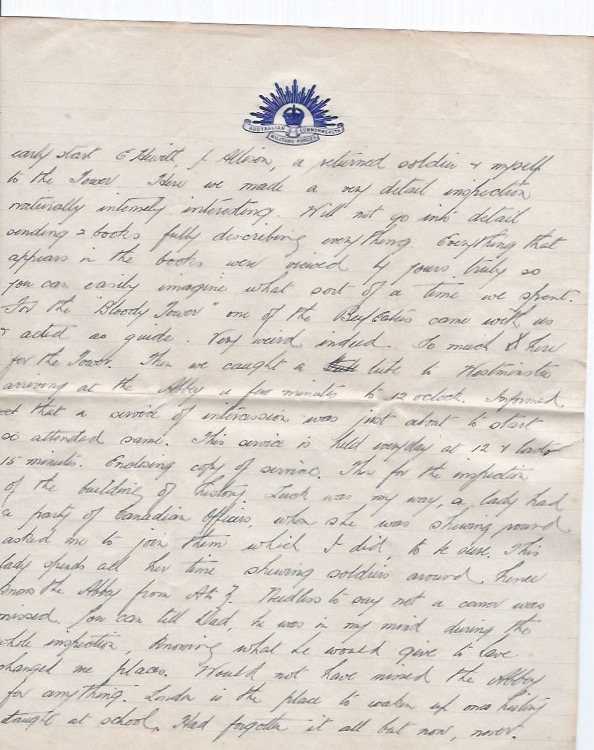 AUSTRALIAN COMMONWEALTH
MILITARY FORCES
early start E Hewitt, J Allison, a returned soldier & myself
to the Tower Here we made a very detail inspection
naturally intensely interesting. Will not go into detail
sending 2 books fully describing everything. Everything that
appears in the books were viewed by yours truly so
you can easily imagine what sort of a time we spent.
For the "Bloody Tower" one of the Beefeaters came with us
& acted as guide. Very weird indeed. So much here
for the Tower. Then we caught a tube to Westminster
arriving at the Abbey a few minutes to 12 oclock. Informed
that a service of intercession was just about to start
so attended same. This service is held everyday at 12 & lasts
15 minutes. Enclosing copy of service. Then for the inspection
of the building of history Luck was my way, a lady had
a party of Canadian Officers, whom she was shewing round
asked me to join them which I did, to be sure. This
lady spends all her time shewing soldiers around hence
knows the Abbey from A to Z. Needless to say not a corner was
missed. You can tell Dad, he was in my mind during the
whole inspection, knowing what he would give to have
changed me places. Would not have missed the Abbey
for anything. London is the place to waken up ones history
taught at school. Had forgotten it all but now, never.